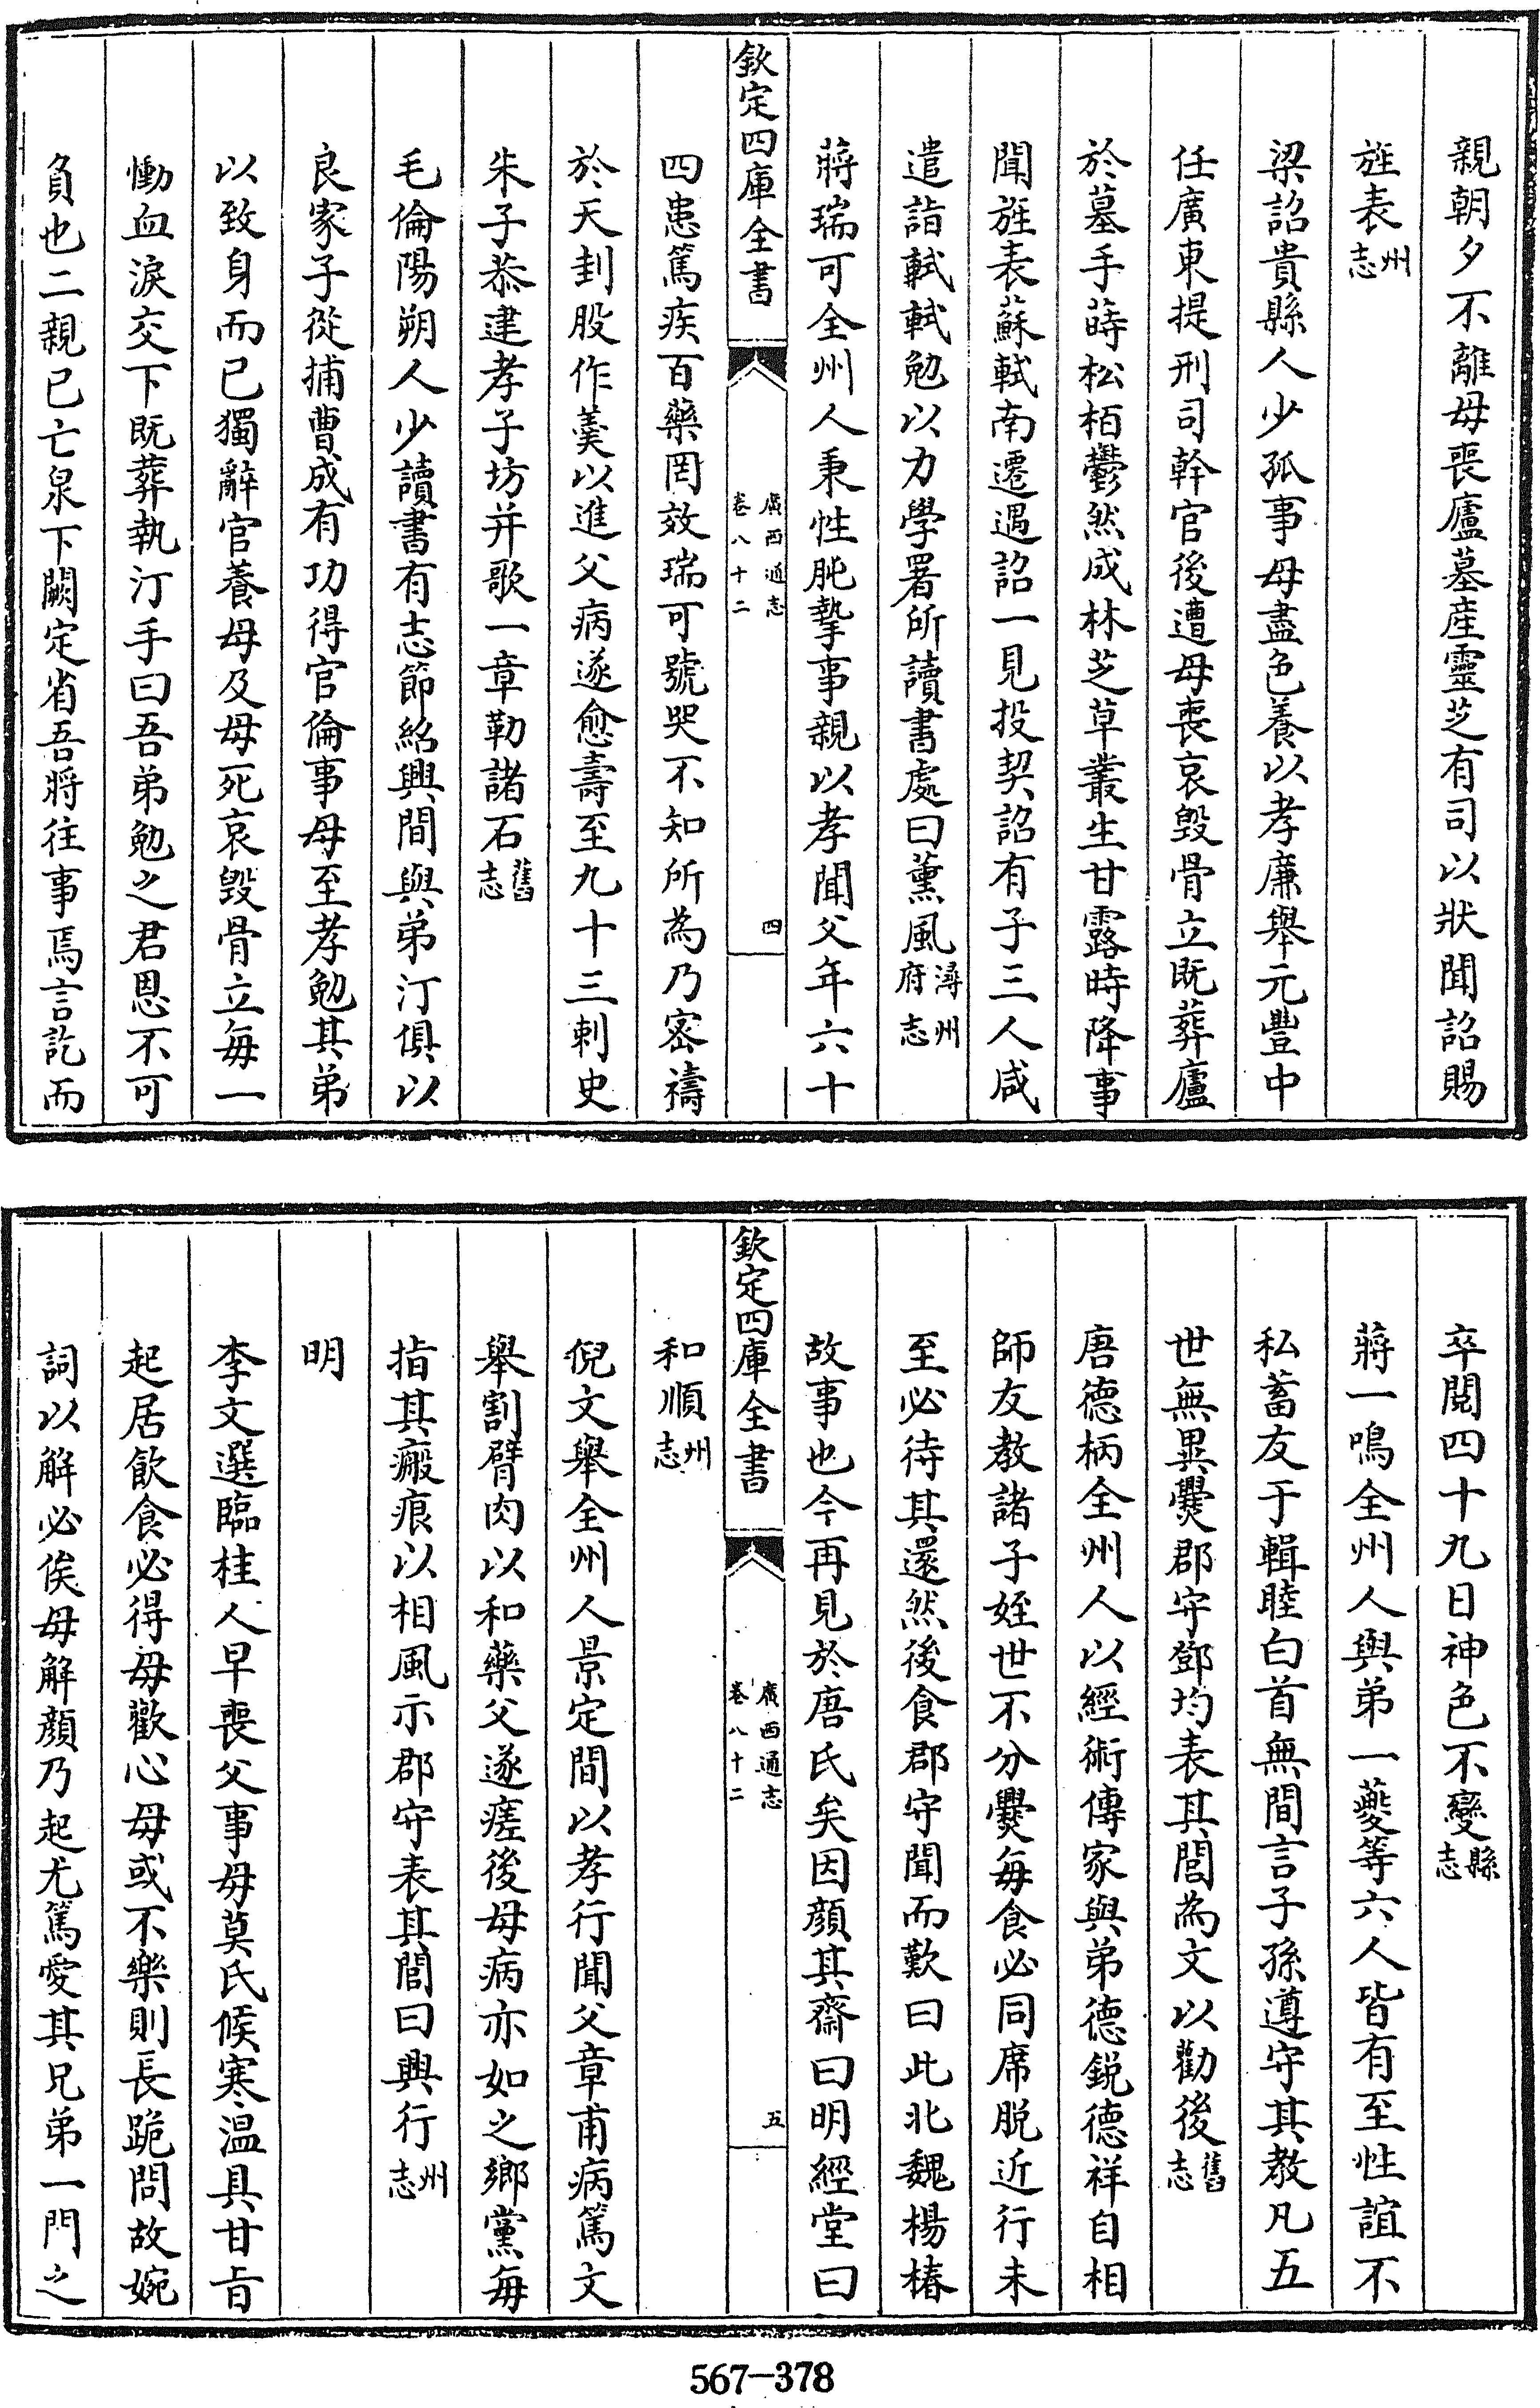 親朝夕不離母喪廬墓産靈芝有司以狀聞詔賜
旌表州志
梁詔貴縣人少孤事母盡色養以孝廉舉元豐中
任廣東提刑司幹官後遭母喪哀毀骨立既葬廬
於墓手蒔松栢鬱然成林芝草叢生甘露時降事
聞旌表蘇軾南遷遇詔一見投契詔有子三人咸
遣詣軾軾勉以力學署所讀書處曰薰風潯州府志
蔣瑞可全州人秉性肫摯事親以孝聞父年六十
欽定四庫全書
廣西通志
卷八十二
四
四患篤疾百藥罔效瑞可號哭不知所為乃密禱
於天刲股作羹以進父病遂愈壽至九十三刺史
朱子恭建孝子坊并歌一章勒諸石舊志
毛倫陽朔人少讀書有志節紹興間與弟汀俱以
良家子從捕曹成有功得官倫事母至孝勉其弟
以致身而已獨辭官養母及母死哀毀骨立每一
慟血淚交下既葬執汀手曰吾弟勉之君恩不可
負也二親已亡泉下闕定省吾將往事焉言訖而
卒閱四十九日神色不變縣志
蔣一鳴全州人與弟一夔等六人皆有至性誼不
私蓄友于輯睦白首無間言子孫遵守其教凡五
世無異爨郡守鄧均表其閭為文以勸後舊志
唐德柄全州人以經術傳家與弟德銳德祥自相
師友教諸子姪世不分爨每食必同席脫近行未
至必待其還然後食郡守聞而歎曰此北魏楊椿
故事也今再見於唐氏矣因顏其齋曰明經堂曰
欽定四庫全書
廣西通志
卷八十二
五
和順州志
倪文舉全州人景定間以孝行聞父章甫病篤文
舉割臂肉以和藥父遂瘥後母病亦如之鄉黨每
指其瘢痕以相風示郡守表其閭曰興行州志
明
李文選臨桂人早喪父事母莫氏候寒温具甘旨
起居飲食必得母歡心母或不樂則長跪問故婉
詞以解必俟母解顏乃起尤篤愛其兄弟一門之
567—378